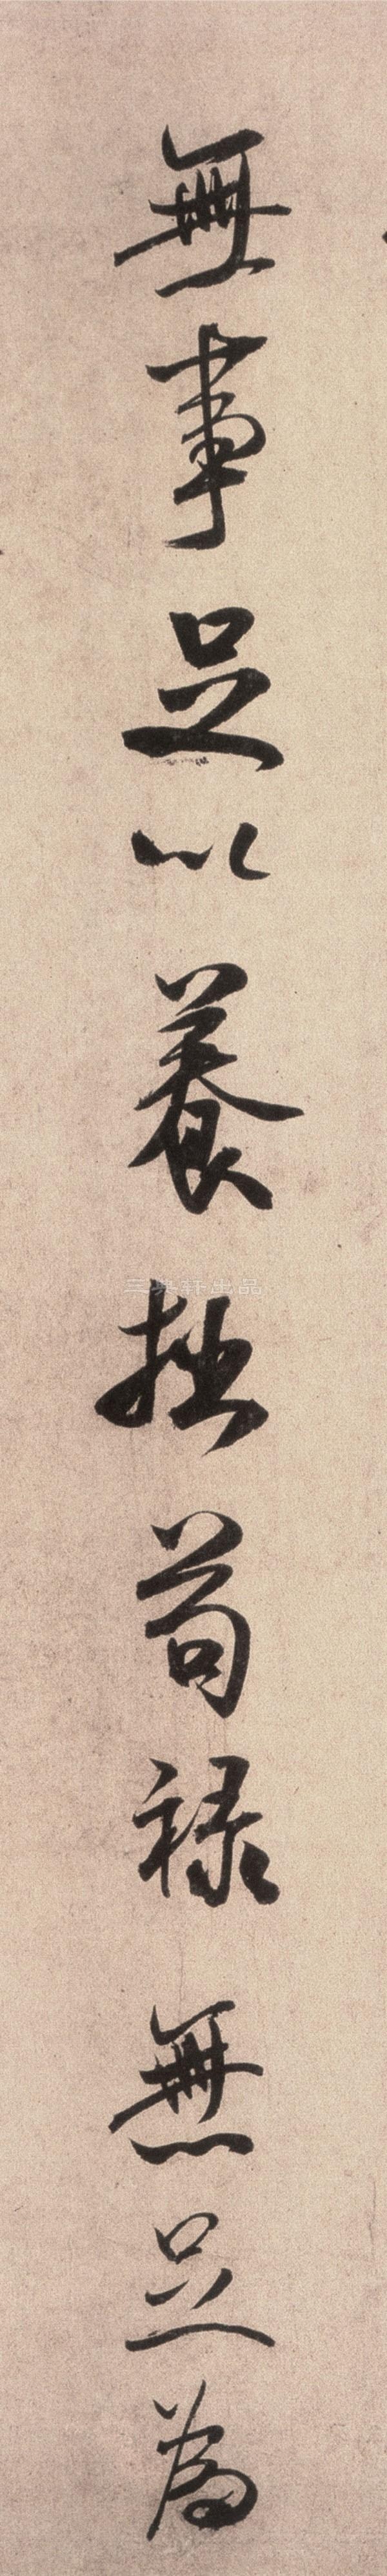 無事足以養拙苟祿無足為
三典轩出品